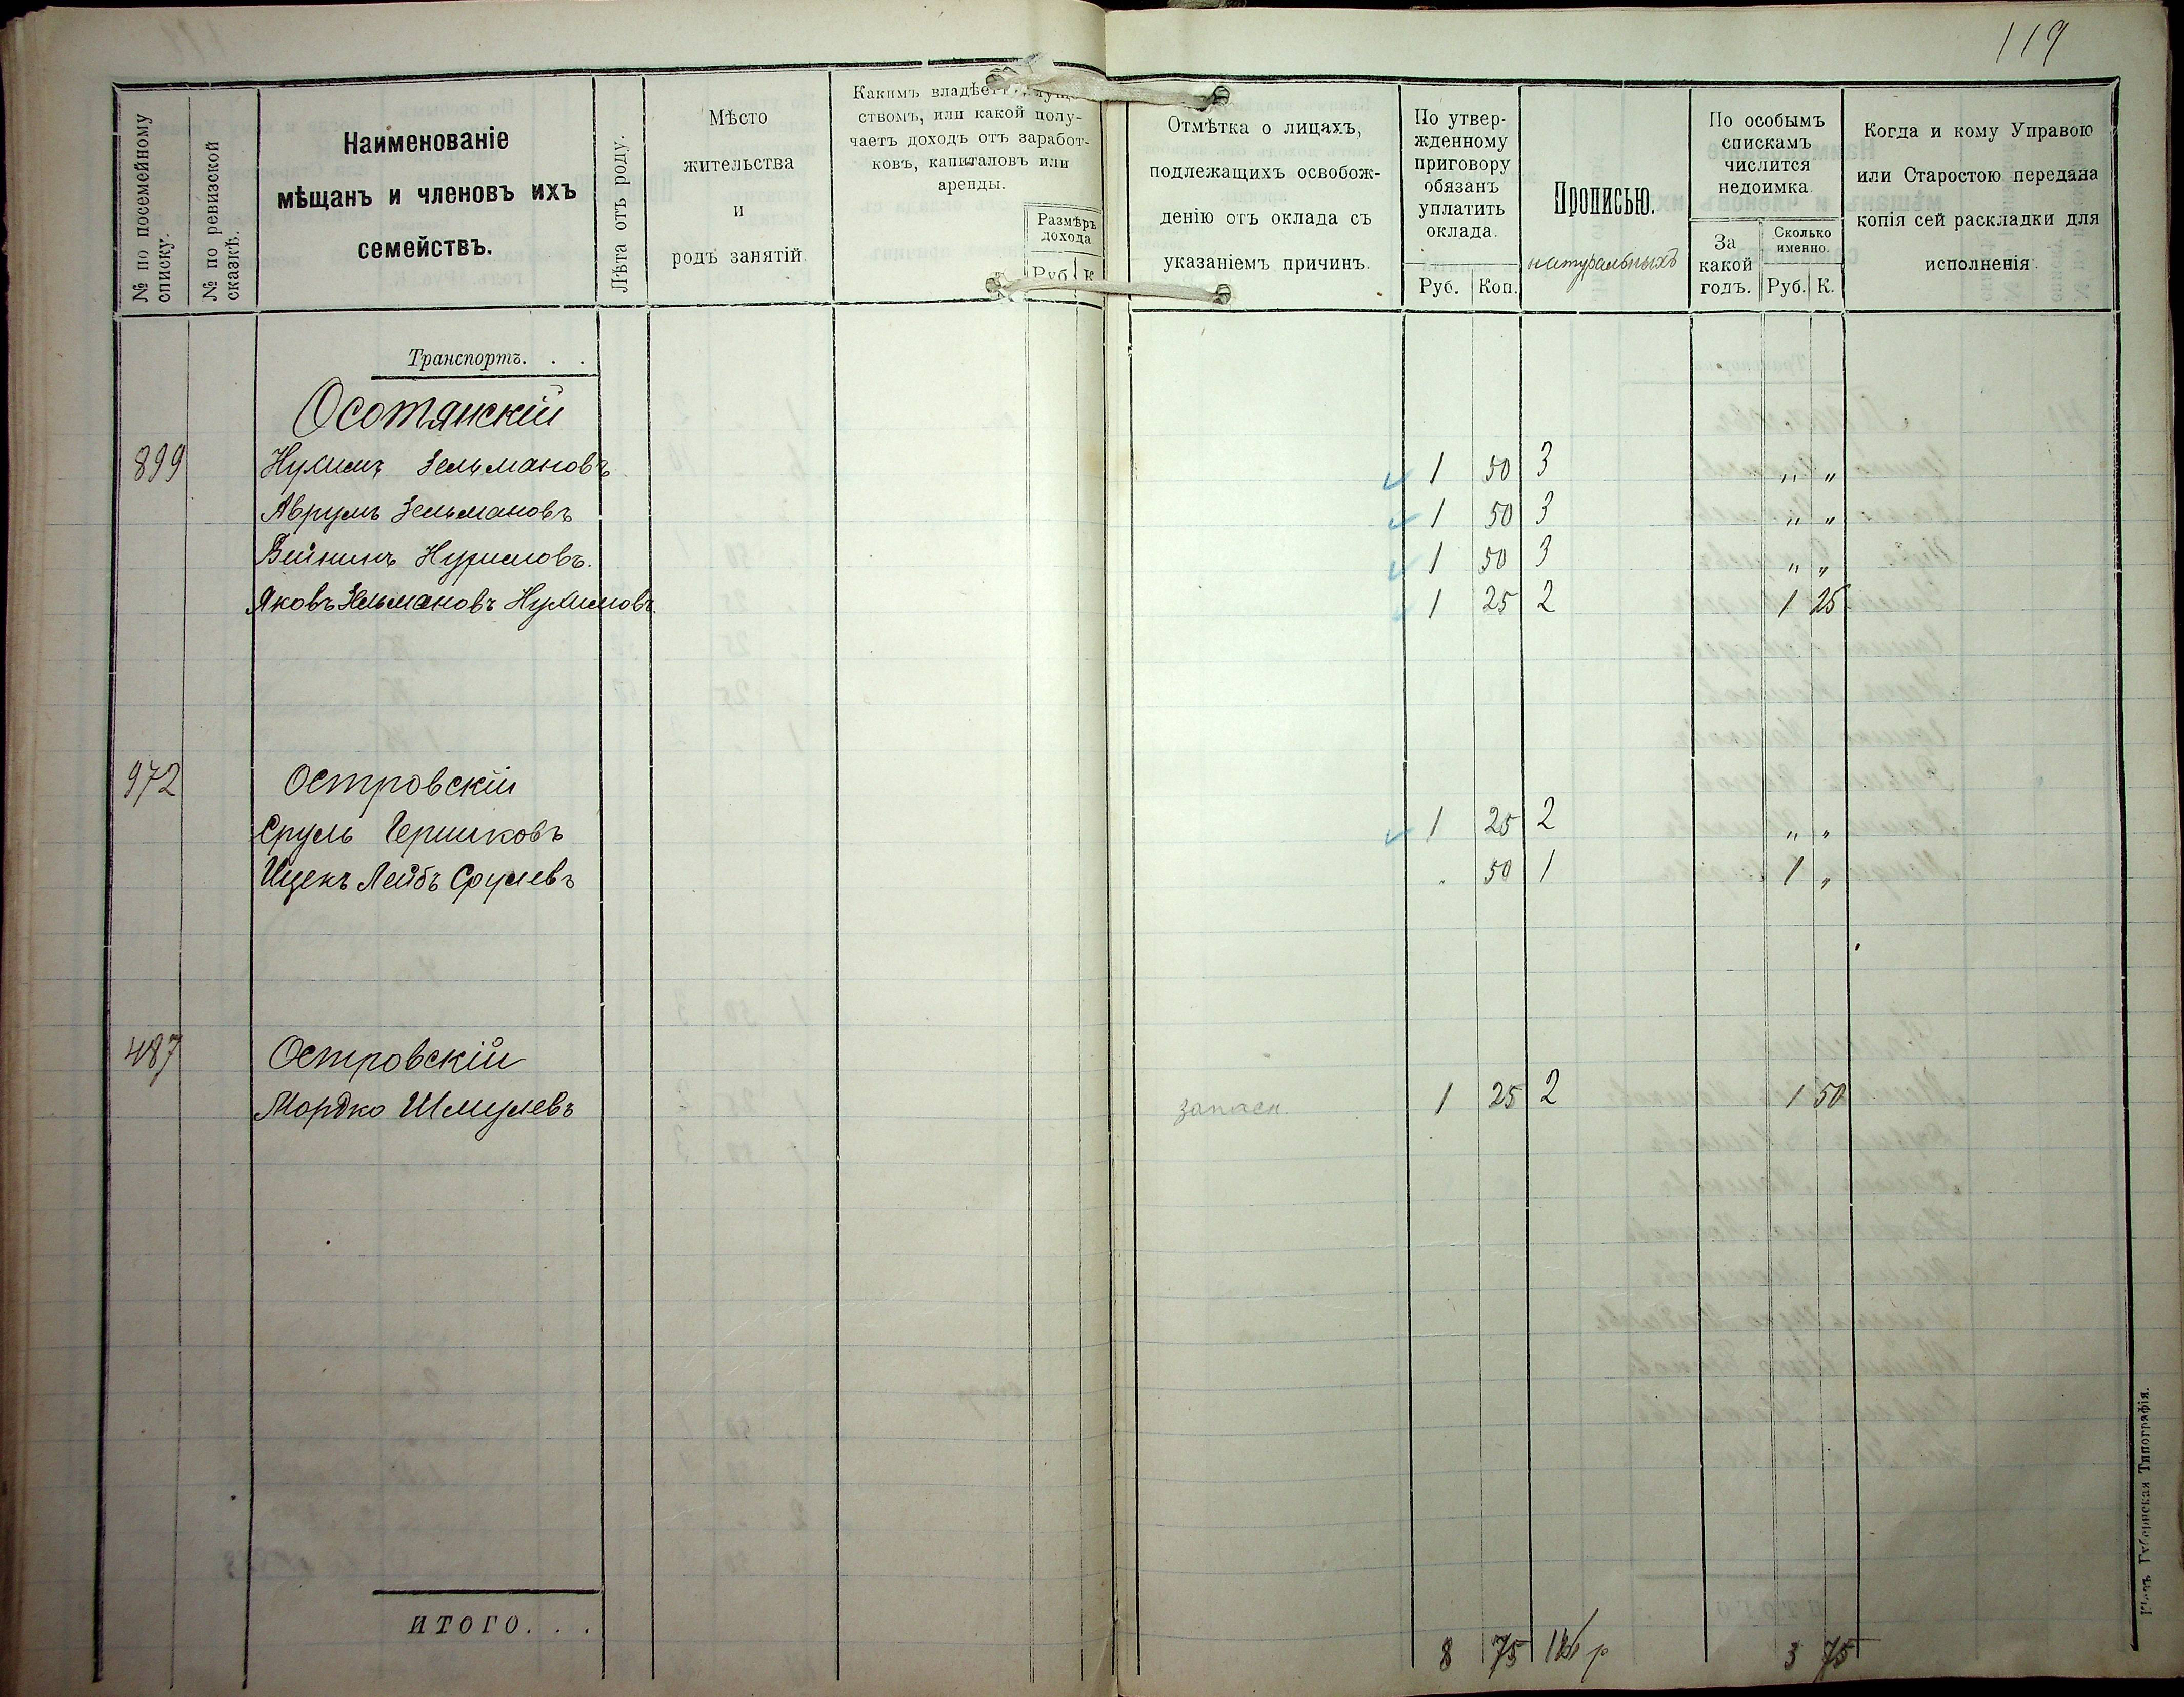 119
№ по посемейному списку.
№ по ревизской сказкѣ.
Наименованіе
мѣщанъ и членовъ ихъ
семействъ.
Лѣта отъ роду.
Мѣсто
жительства
и
родъ занятій
Какимъ владѣетъ
ствомъ, или какой полу-
чаетъ доходъ отъ заработ-
ковъ, капиталовъ или
аренды.
Размѣръ
дохода
Руб. К
Отмѣтка о лицахъ,
подлежащихъ освобож-
денію отъ оклада съ
указаніемъ причинъ.
По утвер-
жденному
приговору
обязанъ
уплатить
оклада.
Руб. Коп.
Прописью.
натуральныхъ
По особымъ
спискамъ
числится
недоимка.
За
какой
годъ.
Сколько
именно.
Руб. К.
Когда и кому Управою
или Старостою передана
копія сей раскладки для
исполненія.
Транспортъ. . .
Осотянскій
899 Нухимъ Зельмановъ 1 50 3 " "
Аврумъ Зельмановъ 1 50 3 " "
Вейнинъ Нухимовъ. 1 50 3 " "
Яковъ Зельмановъ Нухимовъ. 1 25 2 1 25
972 Островскій
Сруль Гершковъ 1 25 2 " "
Ицекъ Лейбъ Срулевъ " 50 1 1 "
487 Островскій
Мордко Шмулевъ запасн. 1 25 2 1 50
ИТОГО. . . 8 75 3 75
Губернская Типографія.